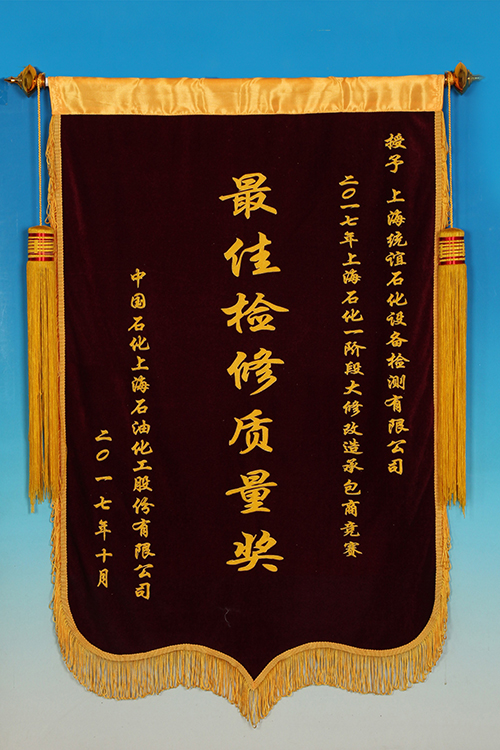 授予 上海统谊石化设备检测有限公司
二〇一七年上海石化一阶段大修改造承包商竞赛
最佳检修质量奖
中国石化上海石油化工股份有限公司
二〇一七年十月